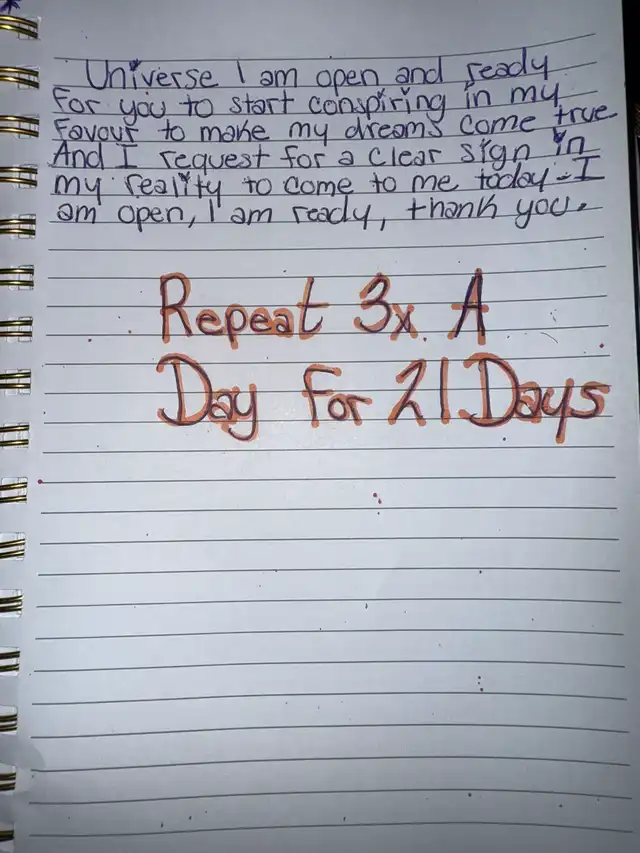 Universe I am open and ready
for you to start conspiring in my
favour to make my dreams come true
And I request for a clear sign in
my reality to come to me today - I
am open, I am ready, thank you.
Repeat 3x A
Day For 21 Days